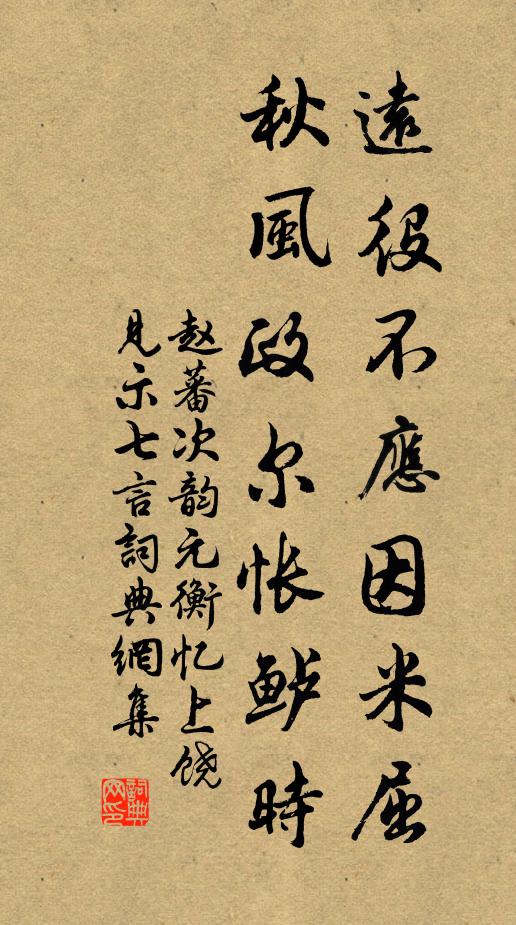 遠役不應因米屈
秋風政尔怅鲈時
赵蕃次韵元衡忆上饶
見示七言詞典網集
詞典
网印